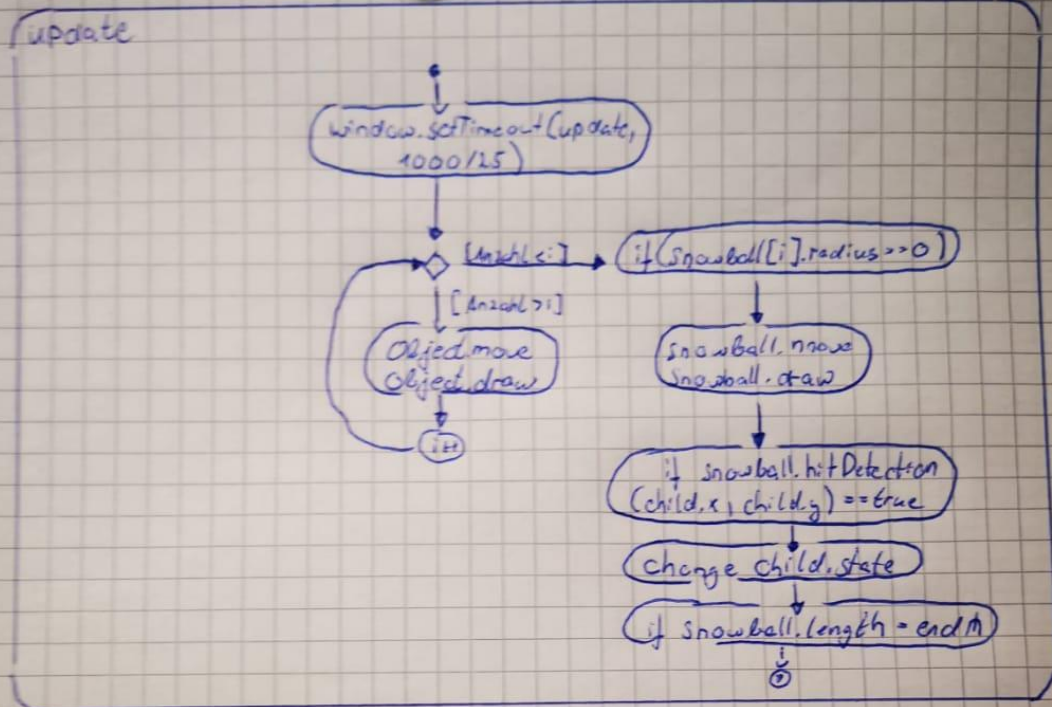 update
window.setTimeout(update,
1000/25)
[Anzahl<i]
if(snowball[i].radius>=0)
[Anzahl>i]
Object.move
Object.draw
i++
snowball.move
snowball.draw
if snowball.hitDetection
(child.x, child.y) == true
change child.state
if snowball.length =